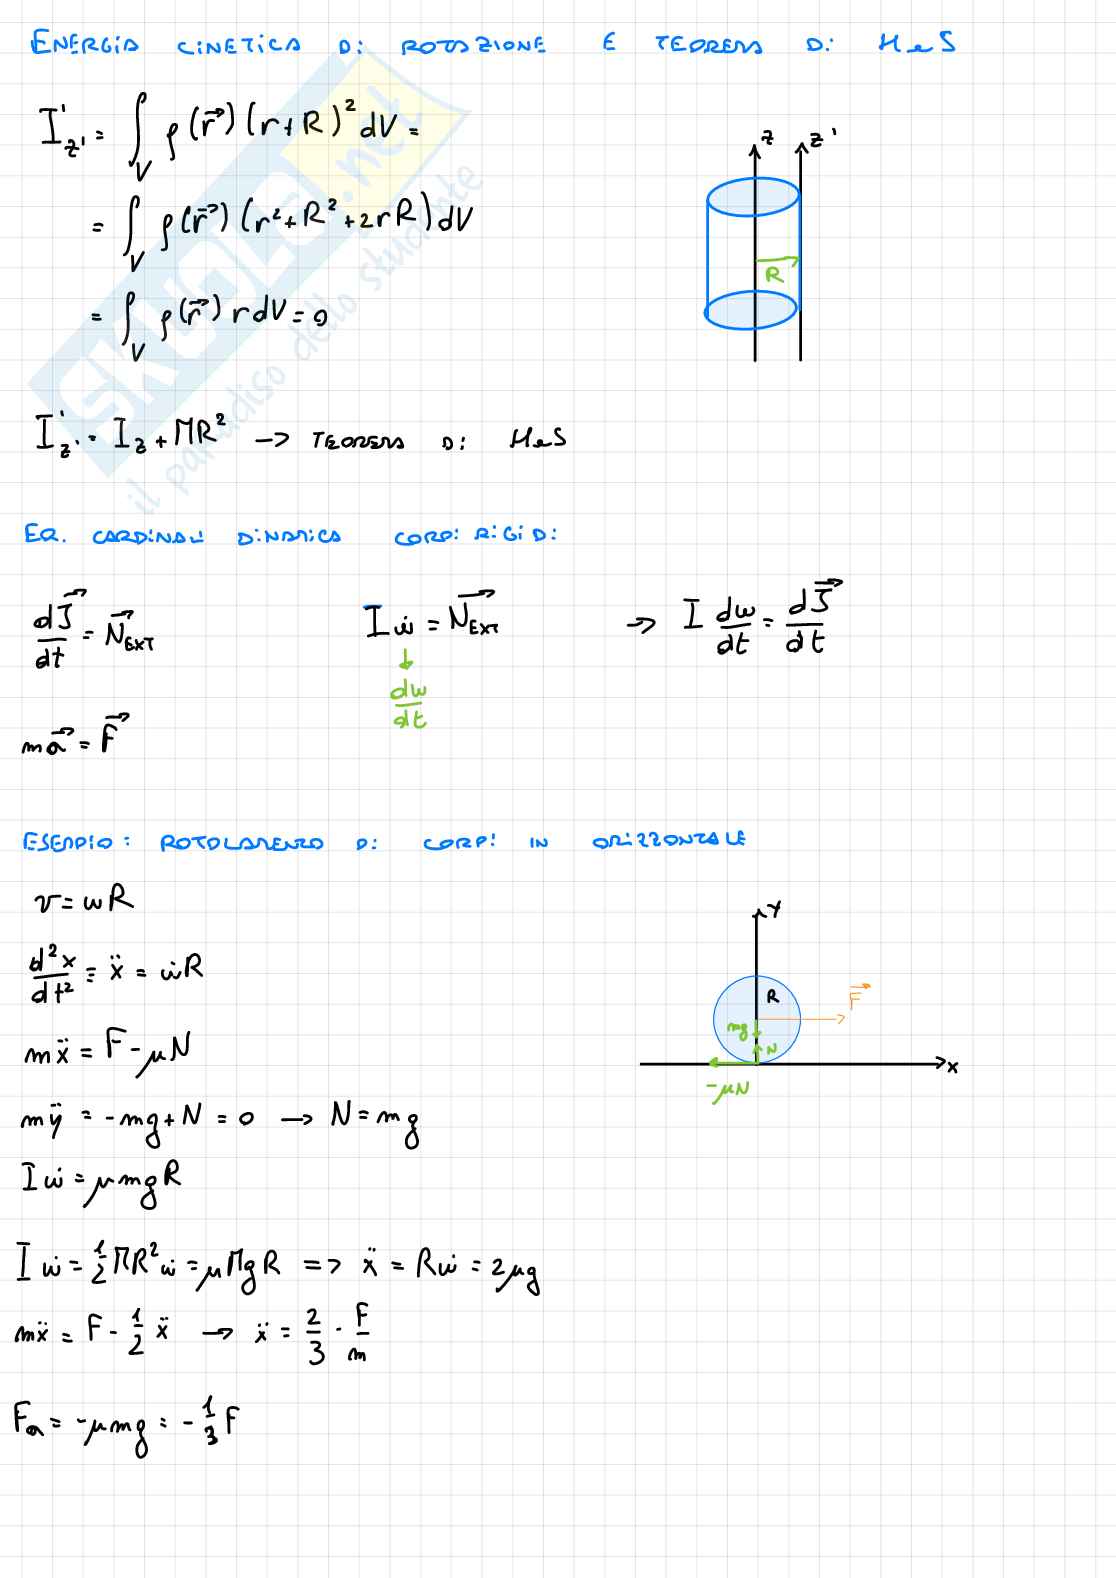 ENERGIA CINETICA DI ROTAZIONE E TEOREMA DI HeS
I'z' = ∫V ρ(r⃗)(r+R)² dV =
= ∫V ρ(r⃗)(r²+R²+2rR) dV
= ∫V ρ(r⃗) r dV = 0
z z'
R
I'z' = Iz + MR² → TEOREMA DI HeS
EQ. CARDINALI DINAMICA CORPI RIGIDI
dJ⃗/dt = N⃗EXT I ω̇ = N⃗EXT → I dω/dt = dJ⃗/dt
dω/dt
ma⃗ = F⃗
ESEMPIO: ROTOLAMENTO DI CORPI IN ORIZZONTALE
v = ωR
d²x/dt² = ẍ = ω̇R
mẍ = F - μN
mÿ = -mg + N = 0 → N = mg
Iω̇ = μmgR
Y
R
F⃗
mg
N
x
-μN
I ω̇ = 1/2 MR²ω̇ = μMgR => ẍ = Rω̇ = 2μg
mẍ = F - 1/2 ẍ → ẍ = 2/3 · F/m
Fa = -μmg = -1/3 F
SKUOLA.net
il paradiso dello studente